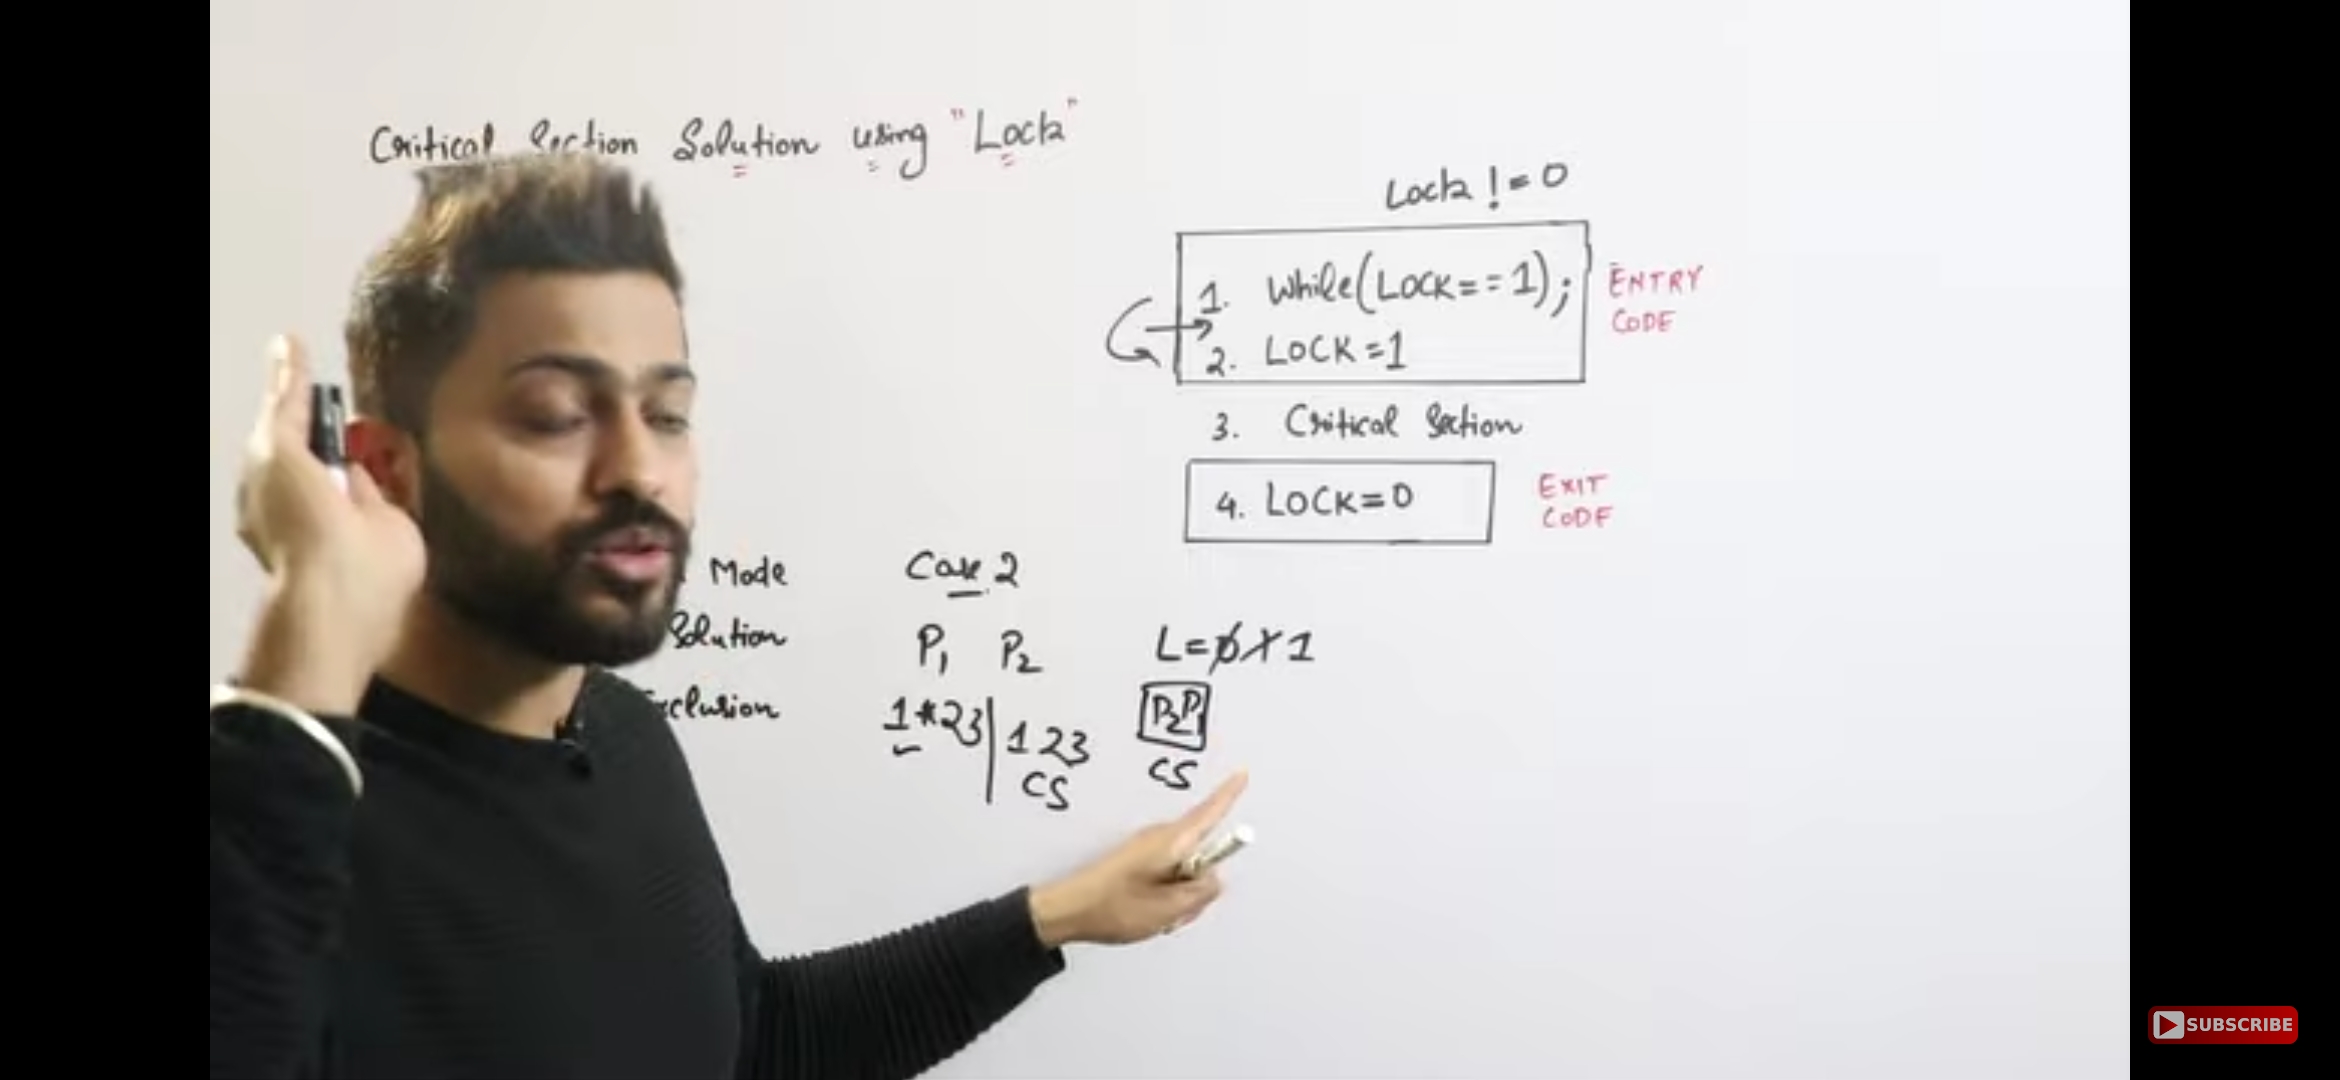 Critical Section Solution using "Lock"
Lock != 0
1. While(LOCK==1);
2. LOCK=1
ENTRY
CODE
3. Critical Section
4. LOCK=0
EXIT
CODE
Mode
Solution
Case 2
P1 P2
1*23 | 123
CS
L=0 1 1
P2 P1
CS
SUBSCRIBE